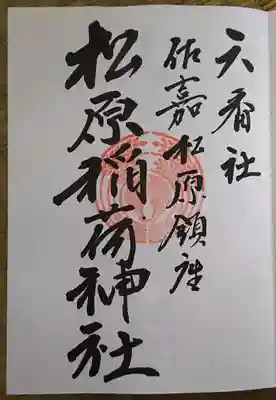 六香社
佐嘉松原鎮座
松原稲荷神社